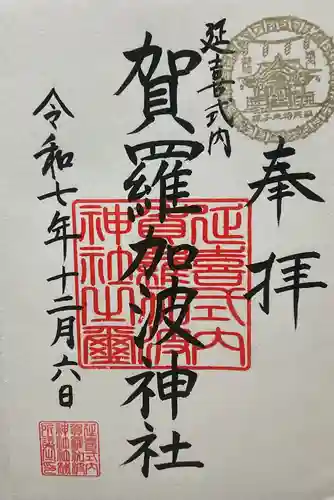 奉拝
延喜式内
賀羅加波神社
令和七年十二月六日
延喜式内
賀羅加波
神社之璽
延喜式内
賀羅加波
神社